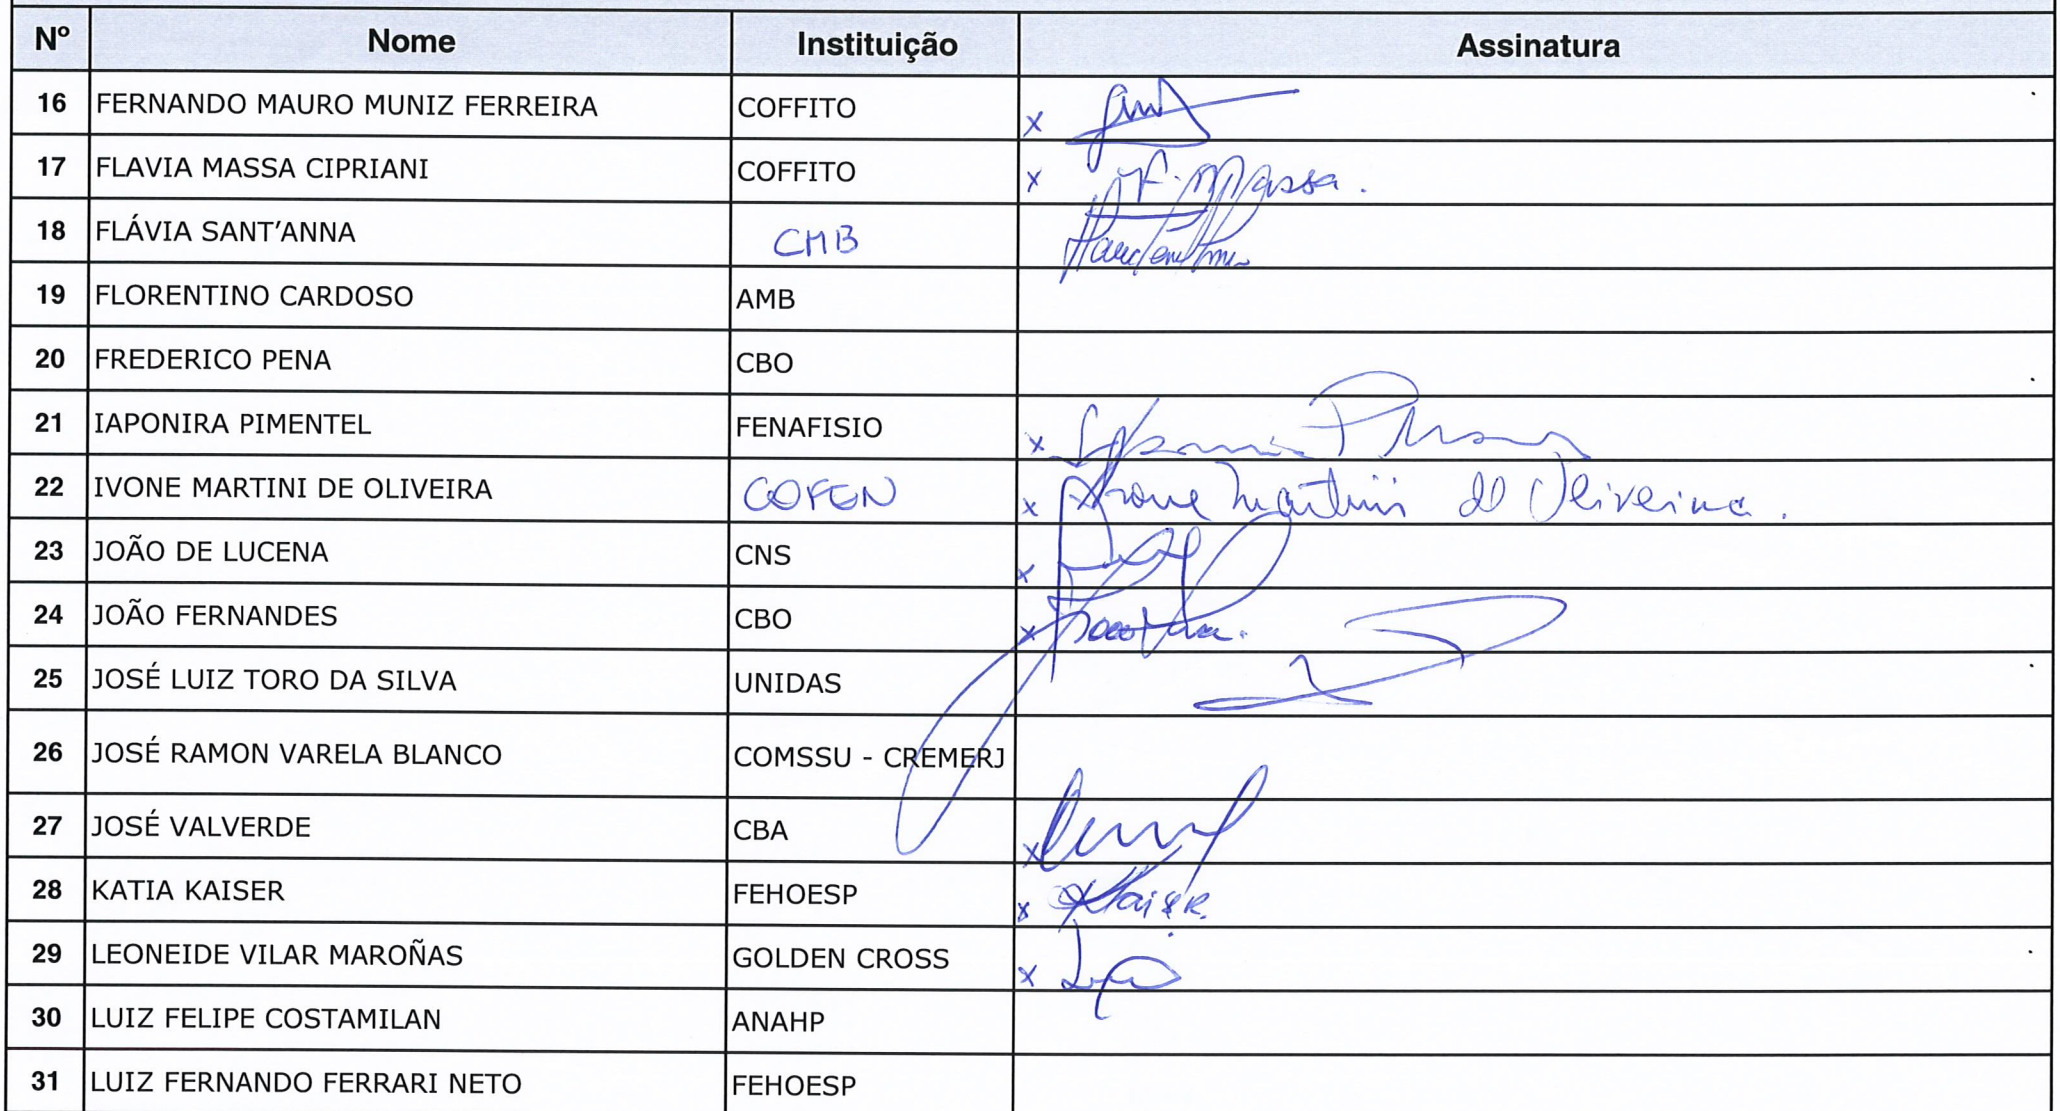 Nº Nome Instituição Assinatura
16 FERNANDO MAURO MUNIZ FERREIRA COFFITO x
17 FLAVIA MASSA CIPRIANI COFFITO x F. Massa.
18 FLÁVIA SANT’ANNA CMB
19 FLORENTINO CARDOSO AMB
20 FREDERICO PENA CBO
21 IAPONIRA PIMENTEL FENAFISIO x
22 IVONE MARTINI DE OLIVEIRA COFEN x Ivone Martini de Oliveira.
23 JOÃO DE LUCENA CNS x
24 JOÃO FERNANDES CBO x
25 JOSÉ LUIZ TORO DA SILVA UNIDAS
26 JOSÉ RAMON VARELA BLANCO COMSSU - CREMERJ
27 JOSÉ VALVERDE CBA x
28 KATIA KAISER FEHOESP x KKaiser.
29 LEONEIDE VILAR MAROÑAS GOLDEN CROSS x
30 LUIZ FELIPE COSTAMILAN ANAHP
31 LUIZ FERNANDO FERRARI NETO FEHOESP